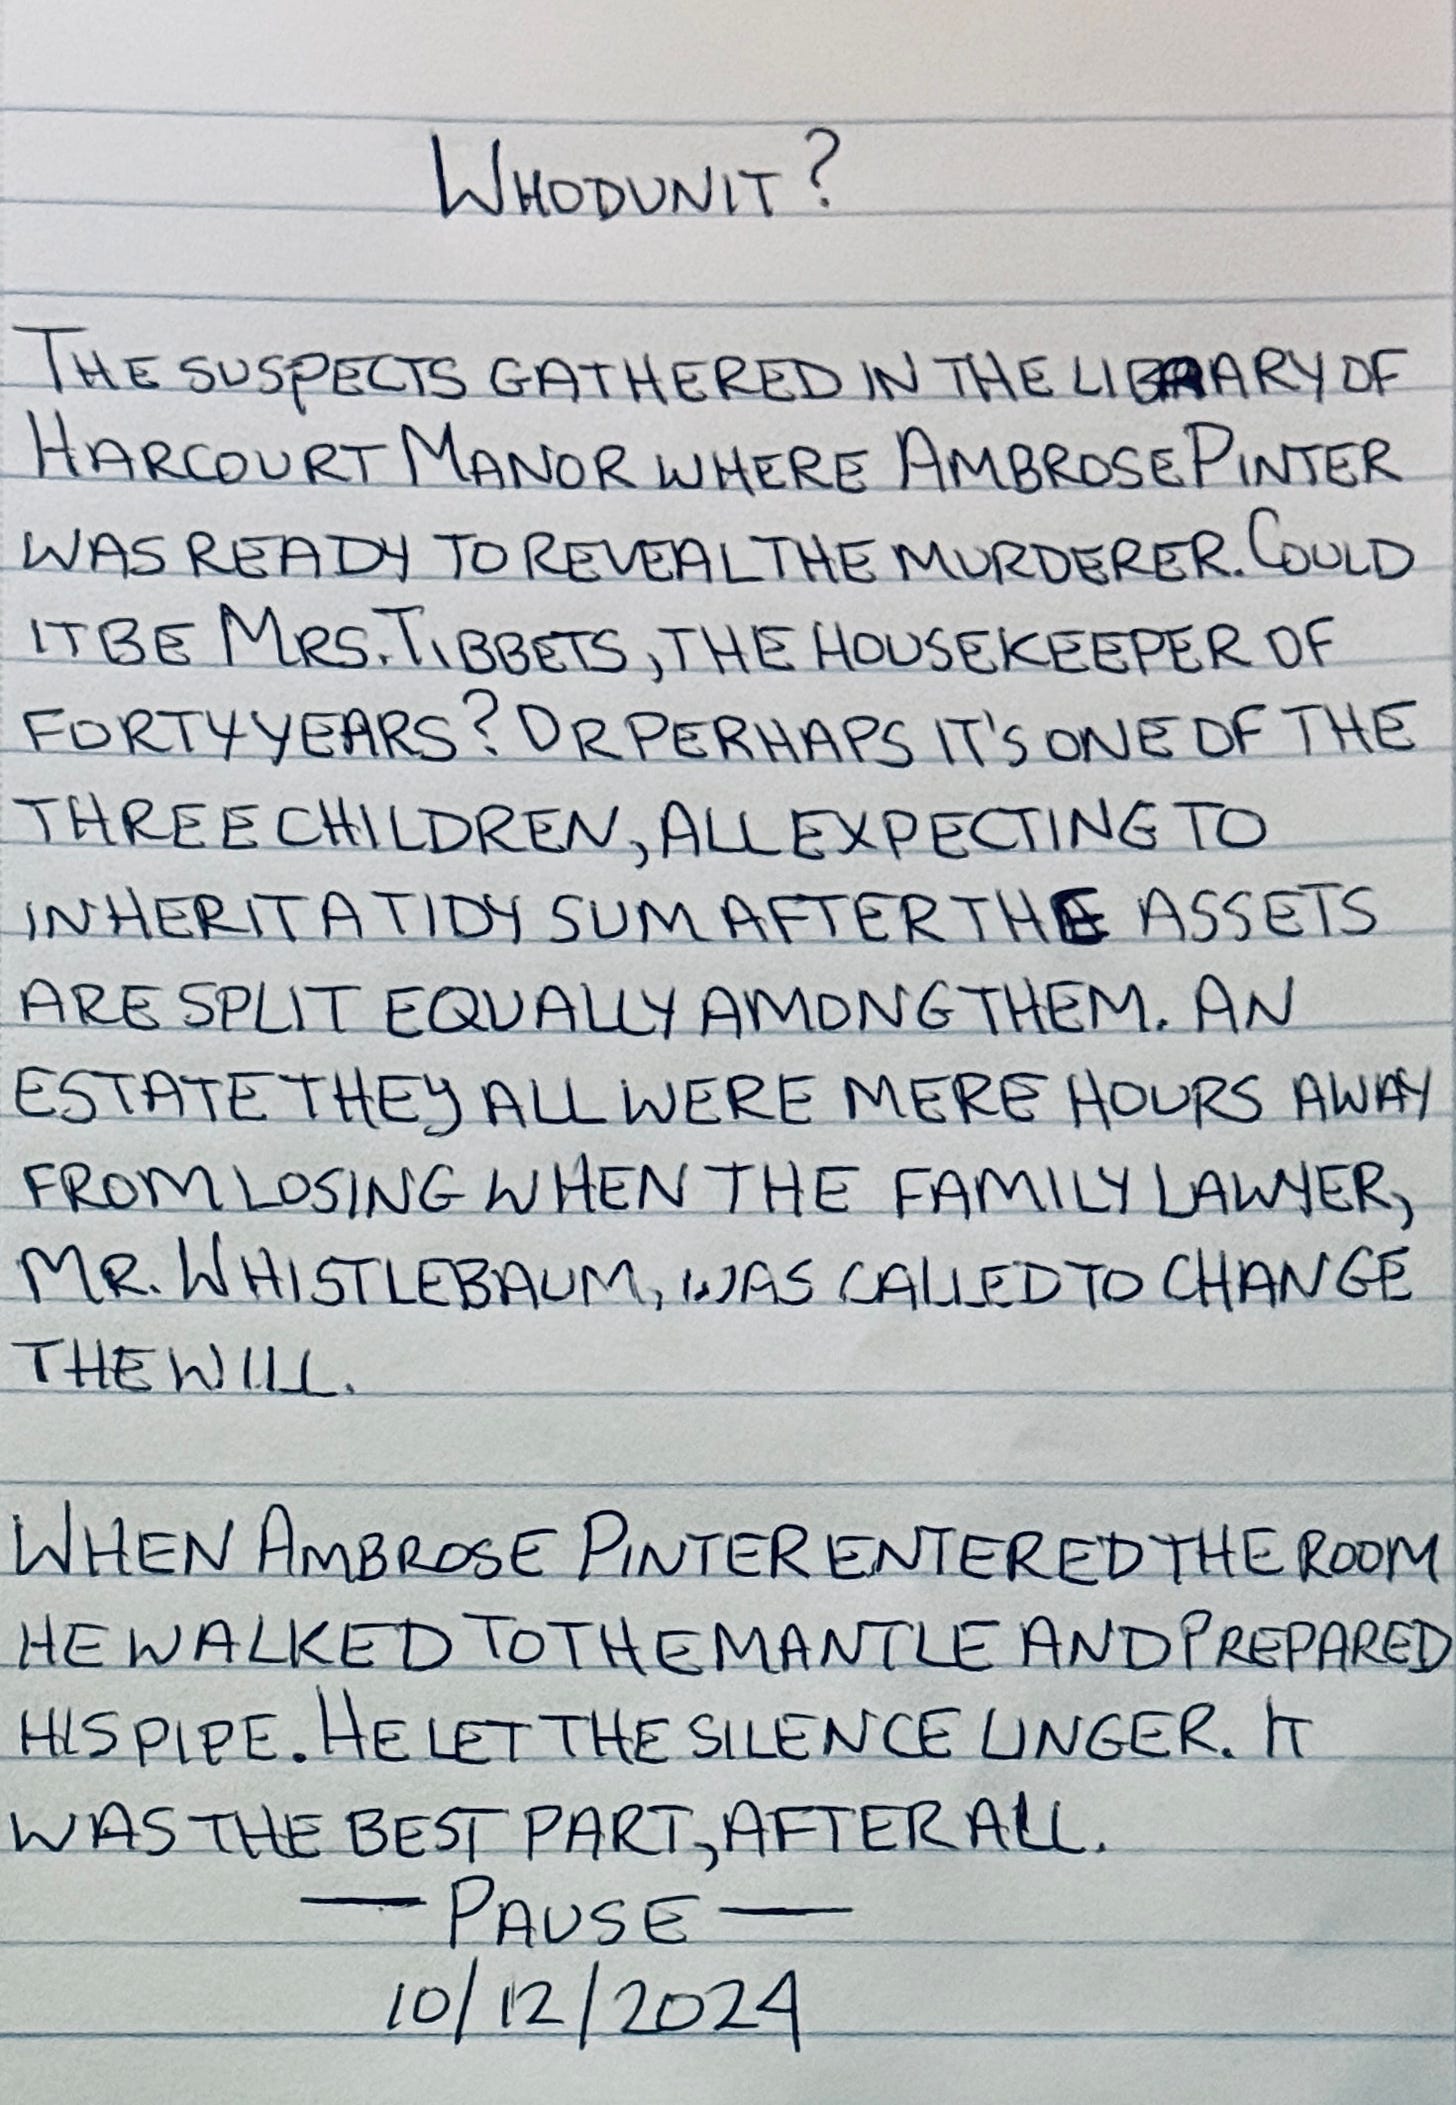 WHODUNIT?
THE SUSPECTS GATHERED IN THE LIBRARY OF
HARCOURT MANOR WHERE AMBROSE PINTER
WAS READY TO REVEAL THE MURDERER. COULD
IT BE MRS. TIBBETS, THE HOUSEKEEPER OF
FORTY YEARS? OR PERHAPS IT'S ONE OF THE
THREE CHILDREN, ALL EXPECTING TO
INHERIT A TIDY SUM AFTER THE ASSETS
ARE SPLIT EQUALLY AMONG THEM. AN
ESTATE THEY ALL WERE MERE HOURS AWAY
FROM LOSING WHEN THE FAMILY LAWYER,
MR. WHISTLEBAUM, WAS CALLED TO CHANGE
THE WILL.
WHEN AMBROSE PINTER ENTERED THE ROOM
HE WALKED TO THE MANTLE AND PREPARED
HIS PIPE. HE LET THE SILENCE LINGER. IT
WAS THE BEST PART, AFTER ALL.
— PAUSE —
10/12/2024